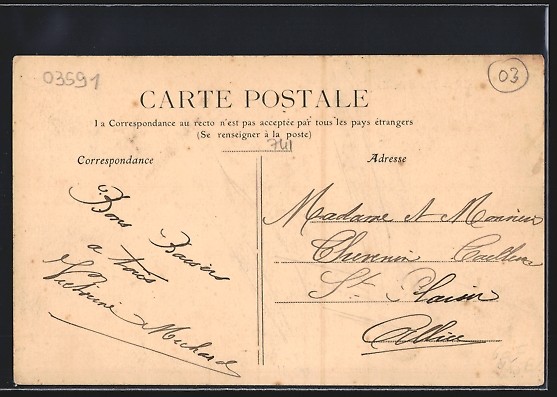 03591
03
CARTE POSTALE
La Correspondance au recto n'est pas acceptée par tous les pays étrangers
(Se renseigner à la poste)
741
Correspondance
Bons Baisers
a tous
Victorine Michard
Adresse
Madame et Monsieur
Chevenin
St Plaisir
Allier